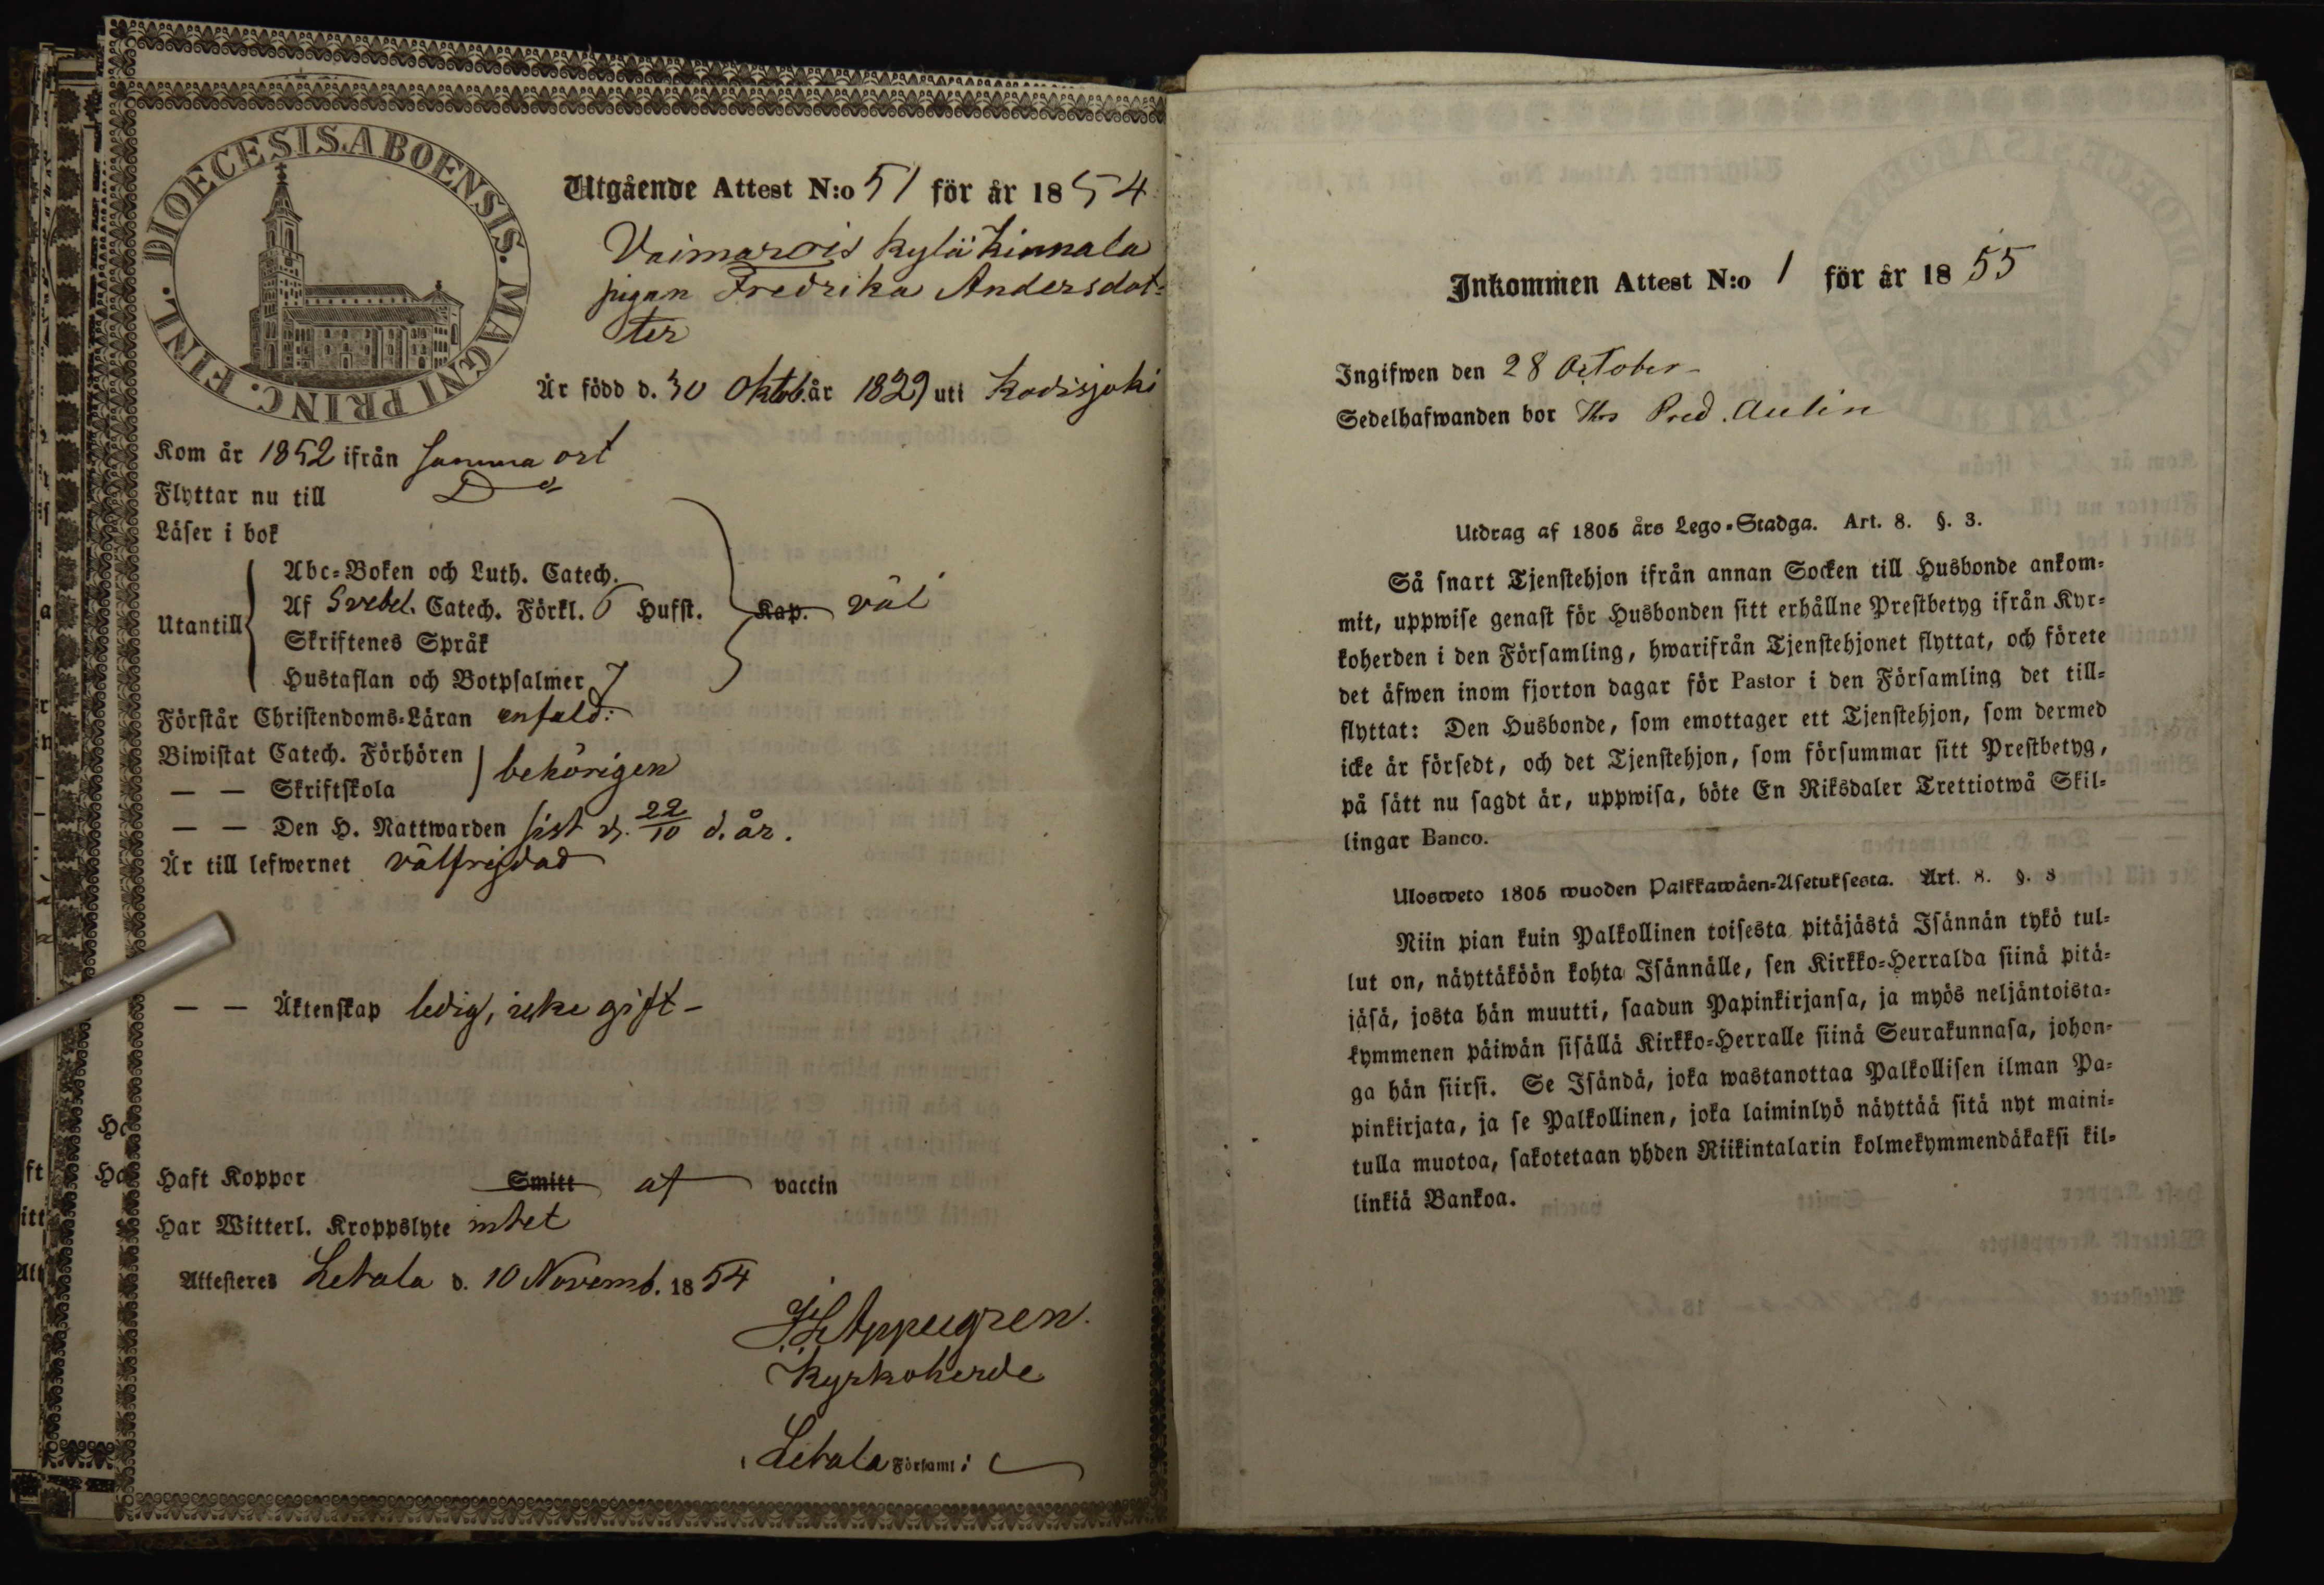 DIOECESIS.ABOENSIS. MAGNI PRINC. FINL.
Utgående Attest N:o 51 för år 1854
Vaimarois kylä Hinnala
pigan Fredrika Andersdot-
ter
Är född d. 30 Oktob. år 1829 uti Kodisjoki
Kom år 1852 ifrån samma ort
Flyttar nu till Do
Läser i bok
Abc-Boken och Luth. Catech.
Utantill Af Svebel. Catech. Förkl. 6 Hufst. Kap. väl
Skriftenes Språk
Hustaflan och Botpsalmer 7
Förstår Christendoms-Läran enfald:
Biwistat Catech. Förhören
— — Skriftskola behörigen
— — Den H. Nattwarden sist d. 22/10 d. år.
Är till lefwernet välfrejdad
— — Äktenskap ledig, icke gift -
Haft Koppor Smitt af vaccin
Har Witterl. Kroppslyte intet
Attesteres Letala d. 10 Novemb. 1854
Kyrkoherde
i Letala Församl:
Inkommen Attest N:o 1 för år 1855
Ingifwen den 28 October
Sedelhafwanden bor Hos Pred. Aulin
Utdrag af 1805 års Lego-Stadga. Art. 8. §. 3.
Så snart Tjenstehjon ifrån annan Socken till Husbonde ankom-
mit, uppwise genast för Husbonden sitt erhållne Prestbetyg ifrån Kyr-
koherden i den Församling, hwarifrån Tjenstehjonet flyttat, och förete
det äfwen inom fjorton dagar för Pastor i den Församling det till-
flyttat: Den Husbonde, som emottager ett Tjenstehjon, som dermed
icke är försedt, och det Tjenstehjon, som försummar sitt Prestbetyg,
på sätt nu sagdt är, uppwisa, böte En Riksdaler Trettiotwå Skil-
lingar Banco.
Ulosweto 1805 wuoden Palkkawäen-Asetuksesta. Art. 8. §. 3
Niin pian kuin Palkollinen toisesta pitäjästä Isännän tykö tul-
lut on, näyttäköön kohta Isännälle, sen Kirkko-Herralda siinä pitä-
jäsä, josta hän muutti, saadun Papinkirjansa, ja myös neljäntoista-
kymmenen päiwän sisällä Kirkko-Herralle siinä Seurakunnasa, johon-
ga hän siirsi. Se Isändä, joka wastanottaa Palkollisen ilman Pa-
pinkirjata, ja se Palkollinen, joka laiminlyö näyttää sitä nyt maini-
tulla muotoa, sakotetaan yhden Riikintalarin kolmekymmendäkaksi kil-
linkiä Bankoa.